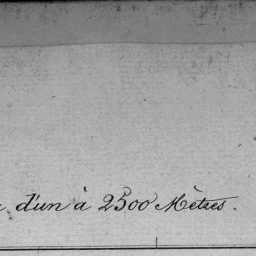 d'un à 2500 Mètres.